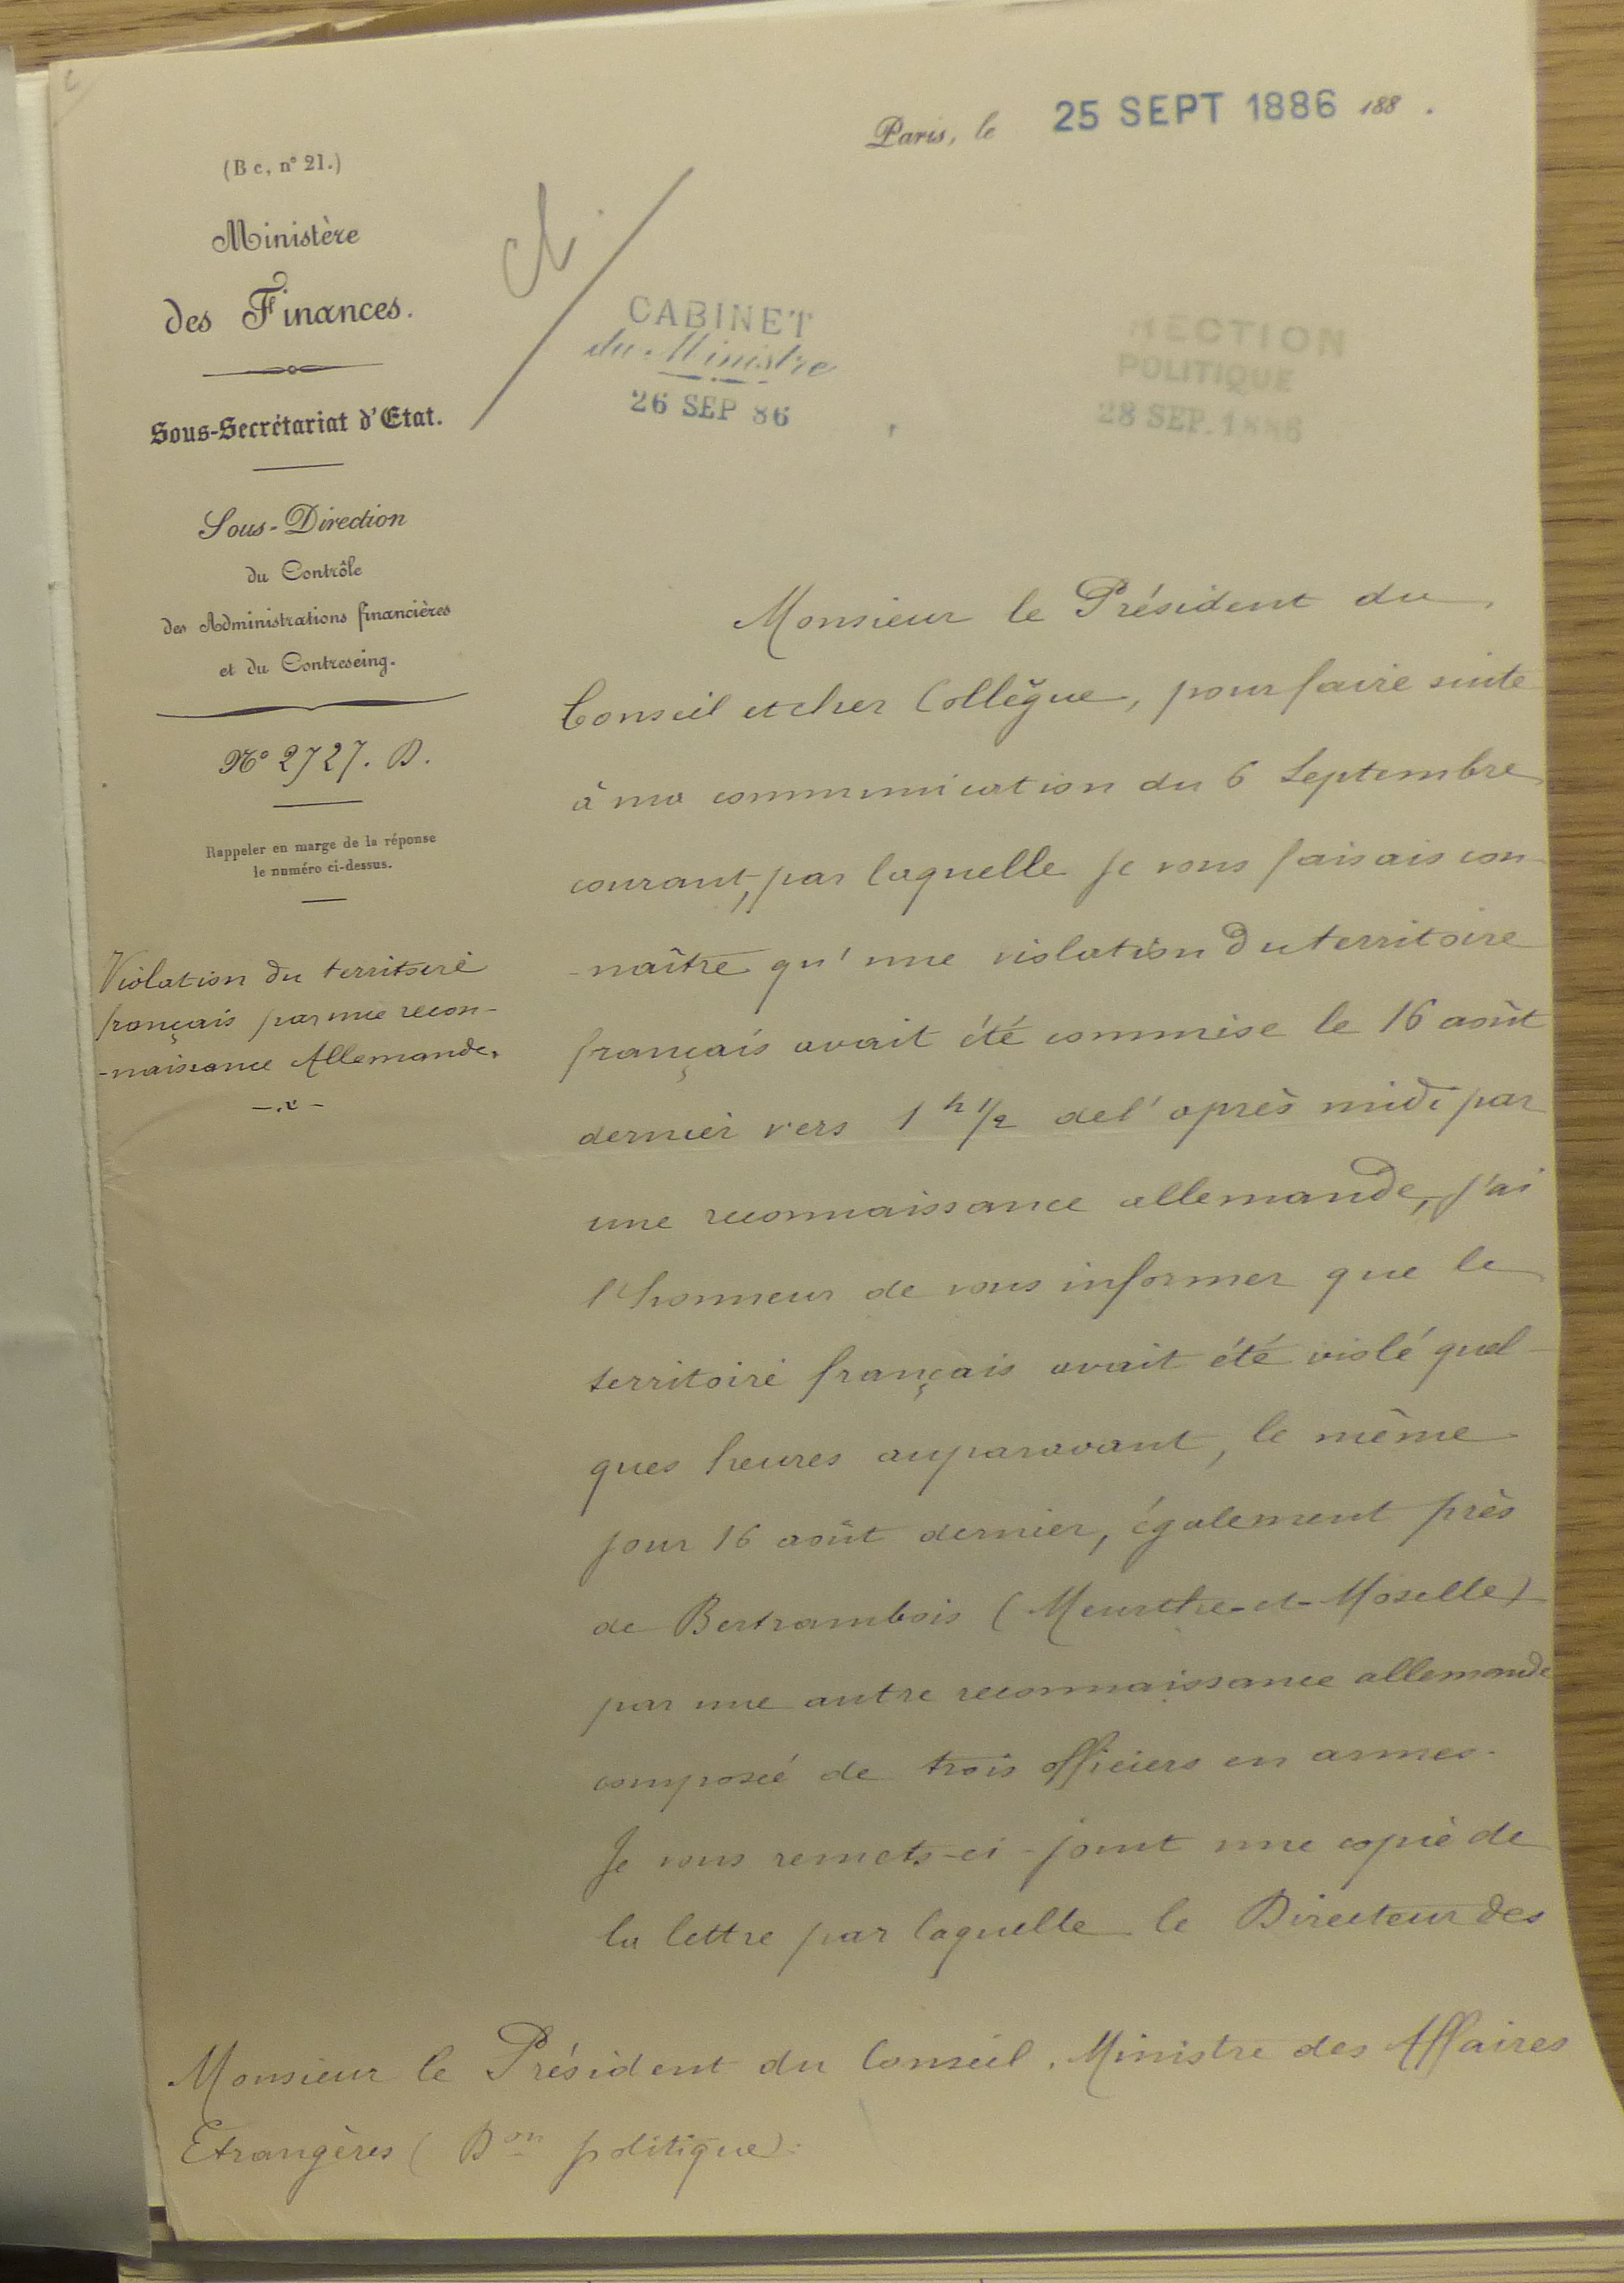 Paris, le 25 SEPT 1886 188 .
(B c, n° 21.)
Ministère
des Finances.
Sous-Secrétariat d'Etat.
Sous-Direction
du Contrôle
des Administrations financières
et du Contreseing.
N° 2727. D.
Rappeler en marge de la réponse
le numéro ci-dessus.
Violation du territoire
français par une recon-
-naissance Allemande.
CABINET
du Ministre
26 SEP 86
POLITIQUE
28 SEP. 1886
Monsieur le Président du
Conseil et cher Collègue, pour faire suite
à ma communication du 6 Septembre
courant, par laquelle je vous faisais con-
-naître qu'une violation du territoire
français avait été commise le 16 août
dernier vers 1 h 1/2 de l'après midi par
une reconnaissance allemande, j'ai
l'honneur de vous informer que le
territoire français avait été violé quel-
ques heures auparavant, le même
jour 16 août dernier, également près
de Bertrambois (Meurthe-et-Moselle)
par une autre reconnaissance allemande
composée de trois officiers en armes.
Je vous remets-ci-joint une copie de
la lettre par laquelle le Directeur des
Monsieur le Président du Conseil, Ministre des Affaires
Etrangères (Don politique).